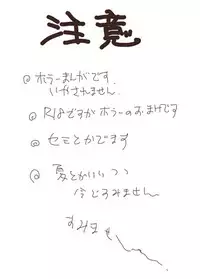 注意
@ ホラーまんがです
いやされません
@ R18ですがホラーのおまけです
@ セミとかでます
@ 夏とかいいつつ
今じすみません
すみませ